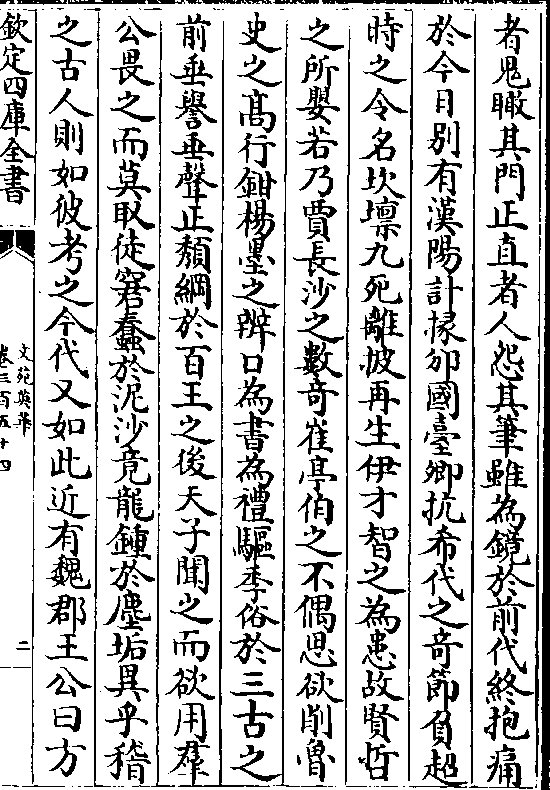 者鬼瞰其門正直者人怨其筆雖為鏡於前代終抱痛
於今日別有漢陽計掾邜國臺卿抗希代之竒節負超
時之令名坎壈九死離披再生伊才智之為患故賢哲
之所嬰若乃賈長沙之數竒崔亭伯之不偶思欲削魯
史之髙行鉗楊墨之辨口為書為禮驅季俗於三古之
前垂譽垂聲正頽綱於百王之後天子聞之而欲用羣
公畏之而莫取徒窘蠢於泥沙竟龍鍾於塵垢異乎稽
之古人則如彼考之今代又如此近有魏郡王公曰方
欽定四庫全書
文苑英華
卷三百五十四
二